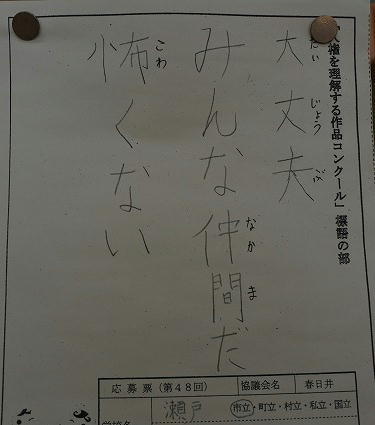 「人権を理解する作品コンクール」標語の部
大丈夫
だいじょうぶ
みんな仲間だ
なかま
怖くない
こわ
応募票(第48回)
協議会名
春日井
瀬戸
市立・町立・村立・私立・国立